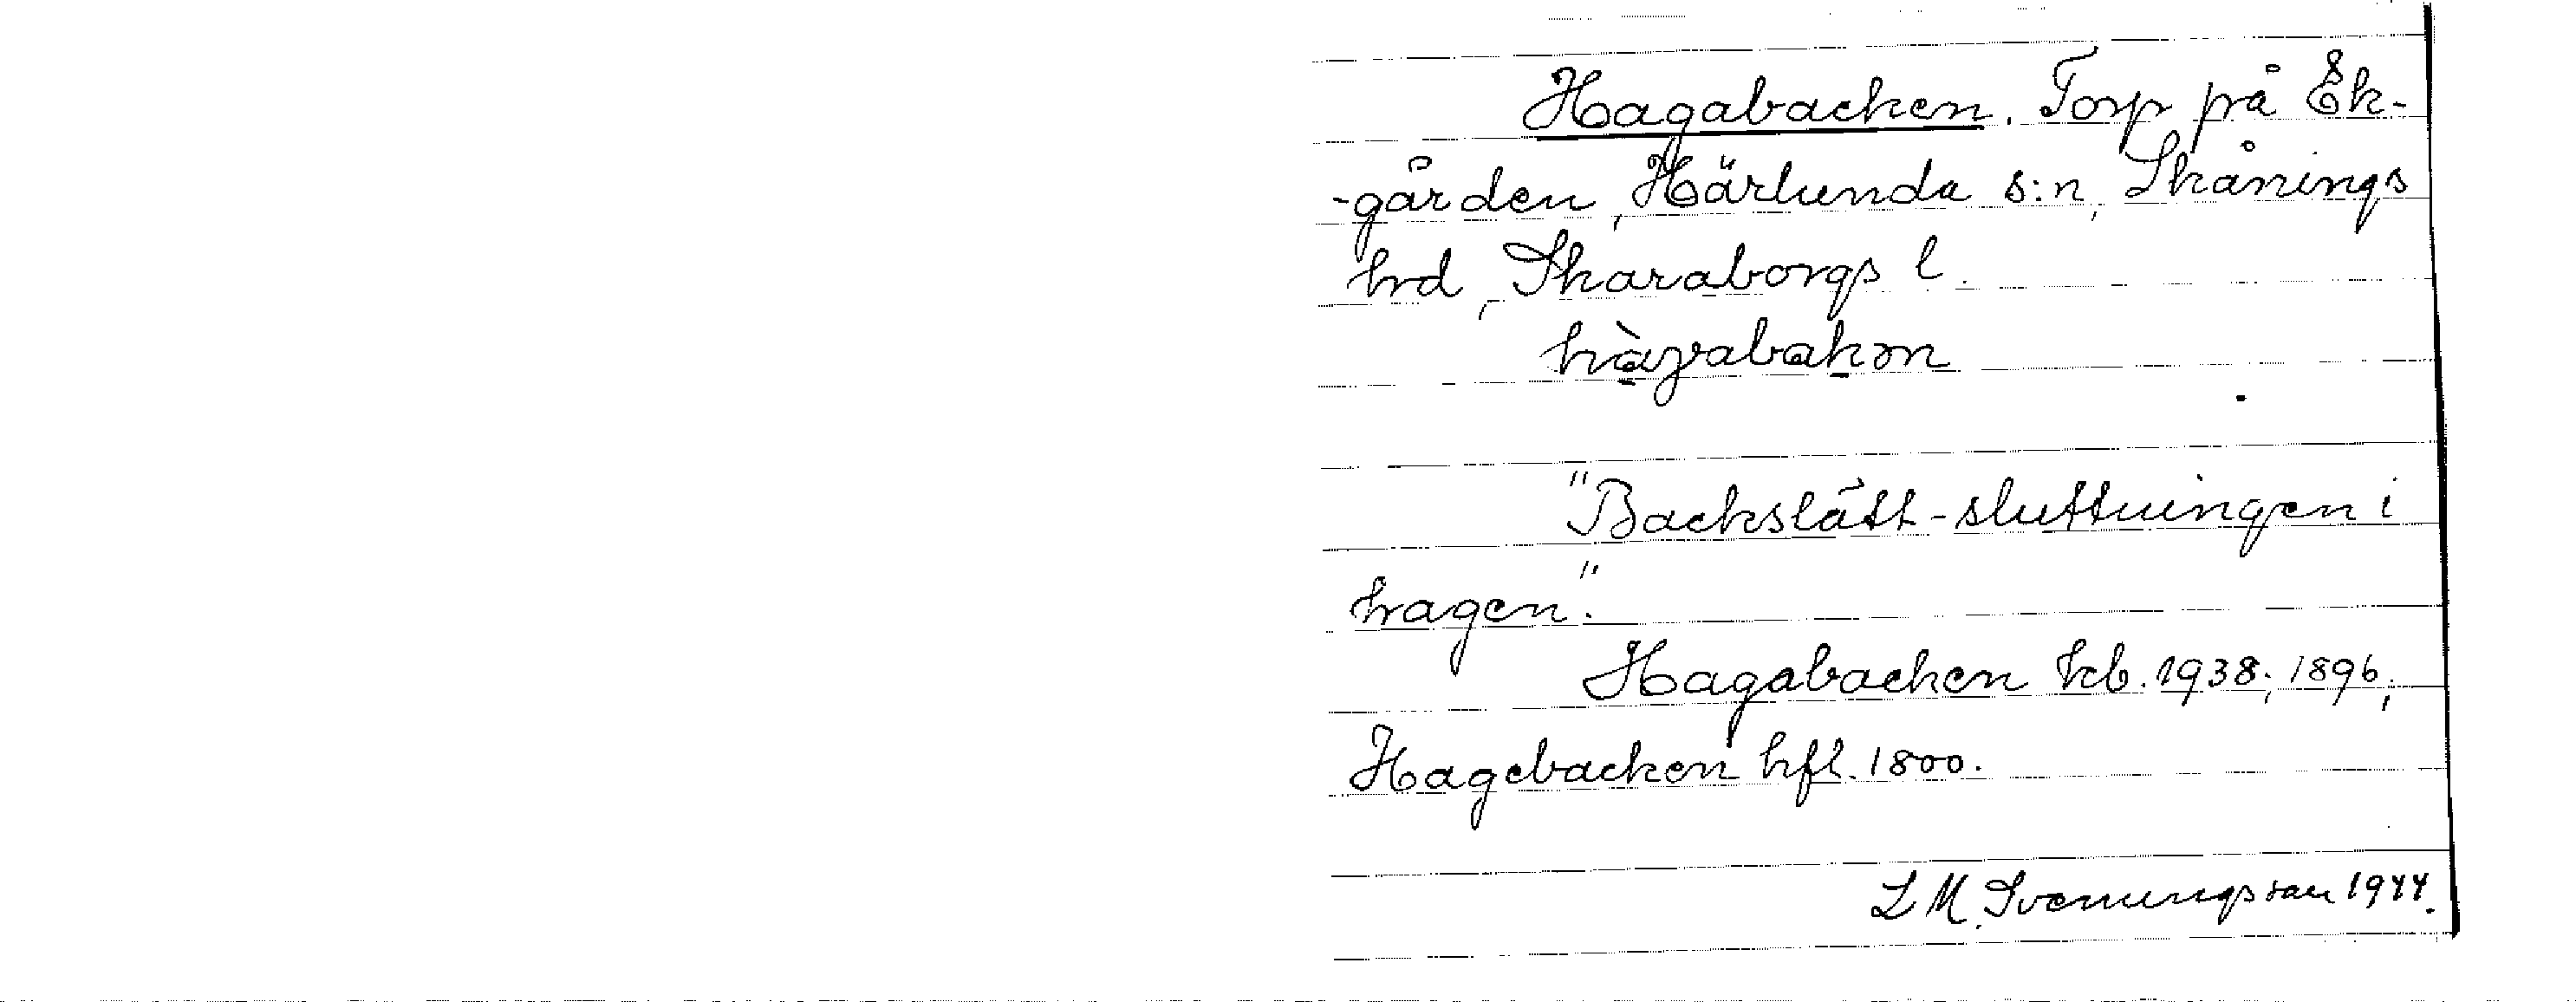 Hagabacken. Torp på Ek-
-gården, Härlunda s:n, Skånings
hrd, Skaraborgs l.
hàgabakən
"Backslätt-sluttningen i
hagen."
Hagabacken kb. 1938; 1896;
Hagebacken hfl. 1800.
L M Svenungsson 1944.